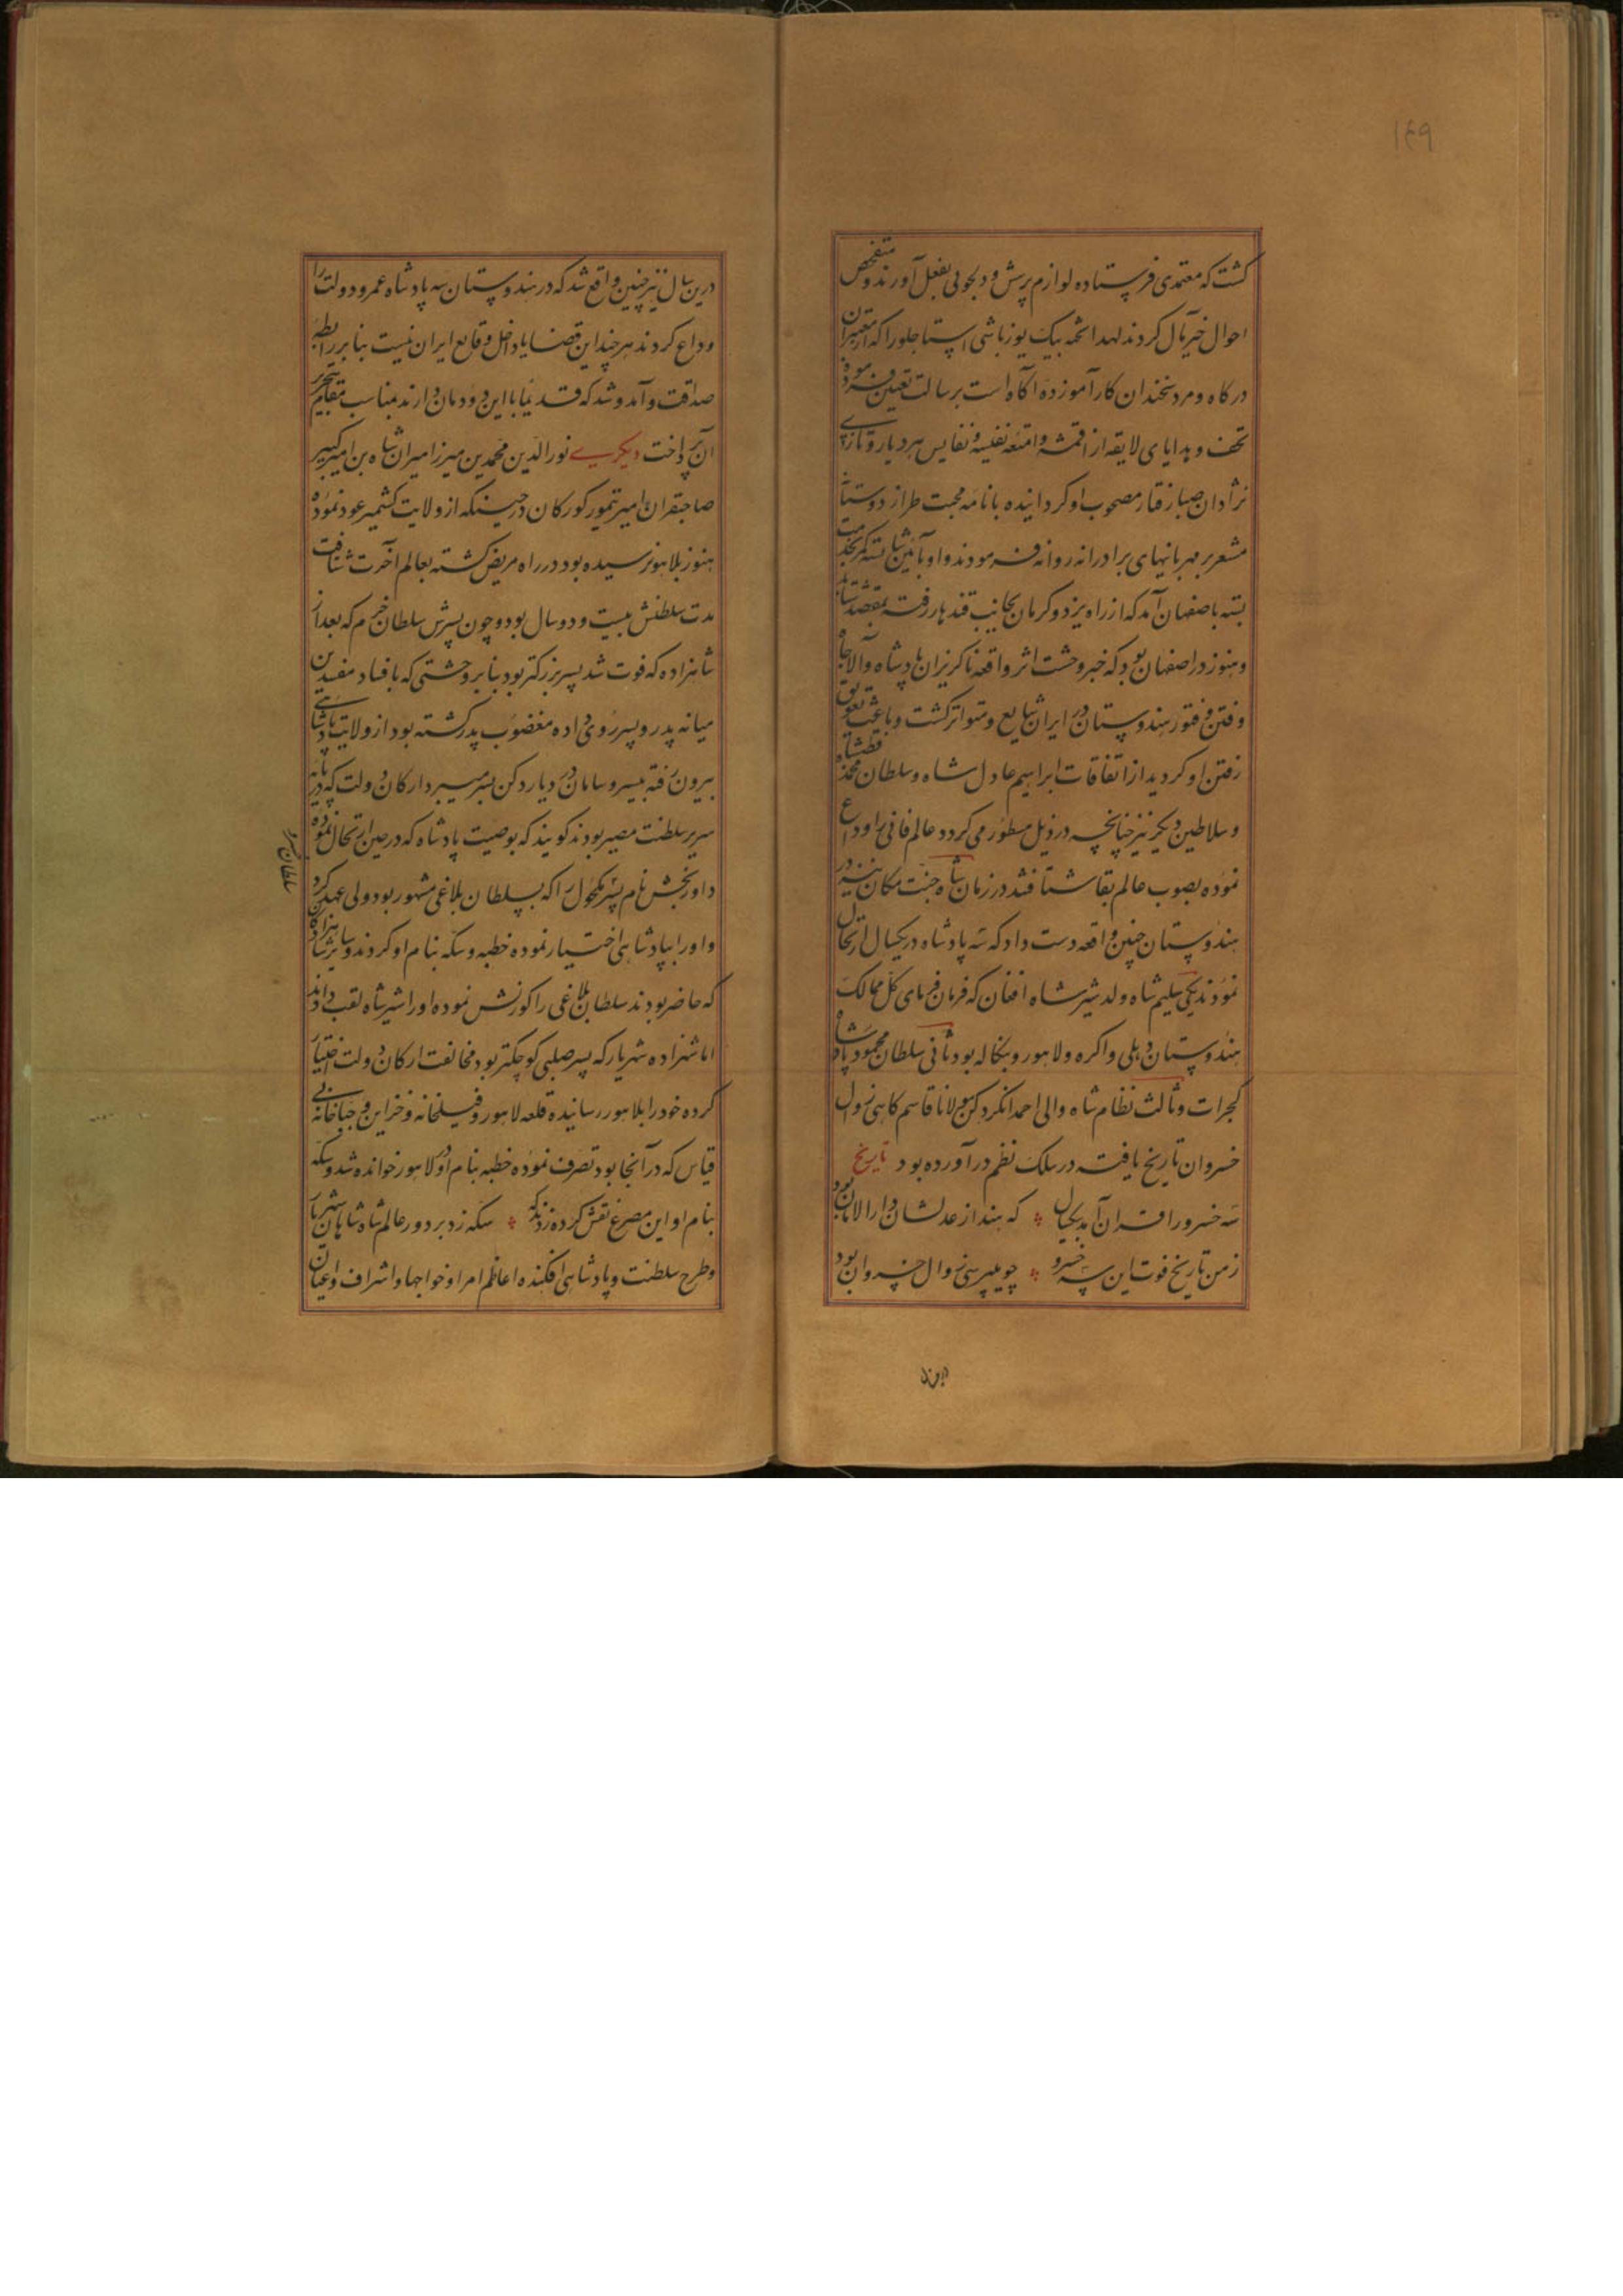 ۱۴۹
کشت که معتمدی فرستاده لوازم پرسش و دلجوئی بفعل آورند و متفحص
احوال خیرمآل کردند لهذا تخته بیک یوزباشی استاجلو را که از معتبران
درکاه و مرد سخندان کارآموزده آکاه است برسالت تعیین فرموده
تحف و هدایای لایقه از اقمشه و امتعه نفیسه و نفایس هر دیار و تازی
نژادان صبا رفتار مصحوب او کردانیده با نامه محبت طراز دوستانه
مشعر بر مهربانیهای برادرانه روانه فرمودند و او بآئین شایسته کمر خدمت
بسته باصفهان آمد که از راه یزد و کرمان بجانب قندهار رفته بمقصد شتابد
و هنوز در اصفهان بود که خبر وحشت اثر واقعه ناکزیران پادشاه والاجاه
و فتن و فتور هندوستان در ایران شایع و متواتر کشت و باعث تعویق
رفتن او کردید از اتفاقات ابراهیم عادل شاه و سلطان محمد قطبشاه
و سلاطین دیکر نیز چنانچه در ذیل مسطور می کردد عالم فانی را وداع
نموده بصوب عالم بقا شتافتند در زمان شاه جنت مکان نیز در
هندوستان چنین واقعه دست داد که سه پادشاه در یکسال ارتحال
نمودند یکی سلیم شاه ولد شیر شاه افغان که فرمان فرمای کل ممالک
هندوستان دهلی و اکره و لاهور و بنکاله بود ثانی سلطان محمود پادشاه
کجرات و ثالث نظام شاه والی احمدانکر دکن مولانا قاسم کاهی زوال
خسروان تاریخ یافته در سلک نظم درآورده بود تاریخ
سه خسرو را قران آمد بیکسال ؞ که هند از عدلشان دارالامان بود
ز من تاریخ فوت این سه خسرو ؞ چو میپرسی زوال خسروان بود
درین سال
درین سال نیز چنین واقع شد که در هندوستان سه پادشاه عمر و دولت را
وداع کردند هر چند این قضایا داخل وقایع ایران نیست بنابر رابطه
صداقت و آمد و شد که قدیما با این دودمان دارند مناسب مقام بتحریر
آن پرداخت دیکری نورالدین محمد بن میرزا میران شاه بن امیر کبیر
صاحبقران امیر تیمور کورکان در حینیکه از ولایت کشمیر عود نموده
هنوز بلاهور نرسیده بود در راه مریض کشته بعالم آخرت شتافت
مدت سلطنتش بیست و دو سال بود و چون پسرش سلطان خرم که بعد از
شاهزاده که فوت شد پسر بزرکتر بود بنابر وحشتی که بافساد مفسدین
میانه پدر و پسر روی داده مغضوب پدر کشته بود از ولایت پادشاهی
بیرون رفته بیسر و سامان در دیار دکن بسر میبرد ارکان دولت که در پایه
سریر سلطنت مصیر بودند کویند که بوصیت پادشاه که در حین ارتحال نموده
داوربخش نام پسر مکحول را که بسلطان بلاغی مشهور بود ولی عهد کرد
و او را بپادشاهی اختیار نموده خطبه و سکه بنام او کردند و سایر شاهزادکان
که حاضر بودند سلطان بلاغی را کورنش نموده او را شیر شاه لقب دادند
اما شهزاده شهریار که پسر صلبی کوچکتر بود مخالفت ارکان دولت اختیار
کرده خود را بلاهور رسانیده قلعه لاهور و فیلخانه و خزاین و جباخانه بی
قیاس که در آنجا بود تصرف نموده خطبه بنام او در لاهور خوانده شد و سکه
بنام او این مصرع نقش کرده زدند که ؞ سکه زد بر دور عالم شاه شاهان شهریار
و طرح سلطنت و پادشاهی افکنده اعاظم امرا و خواجها و اشراف و اعیان